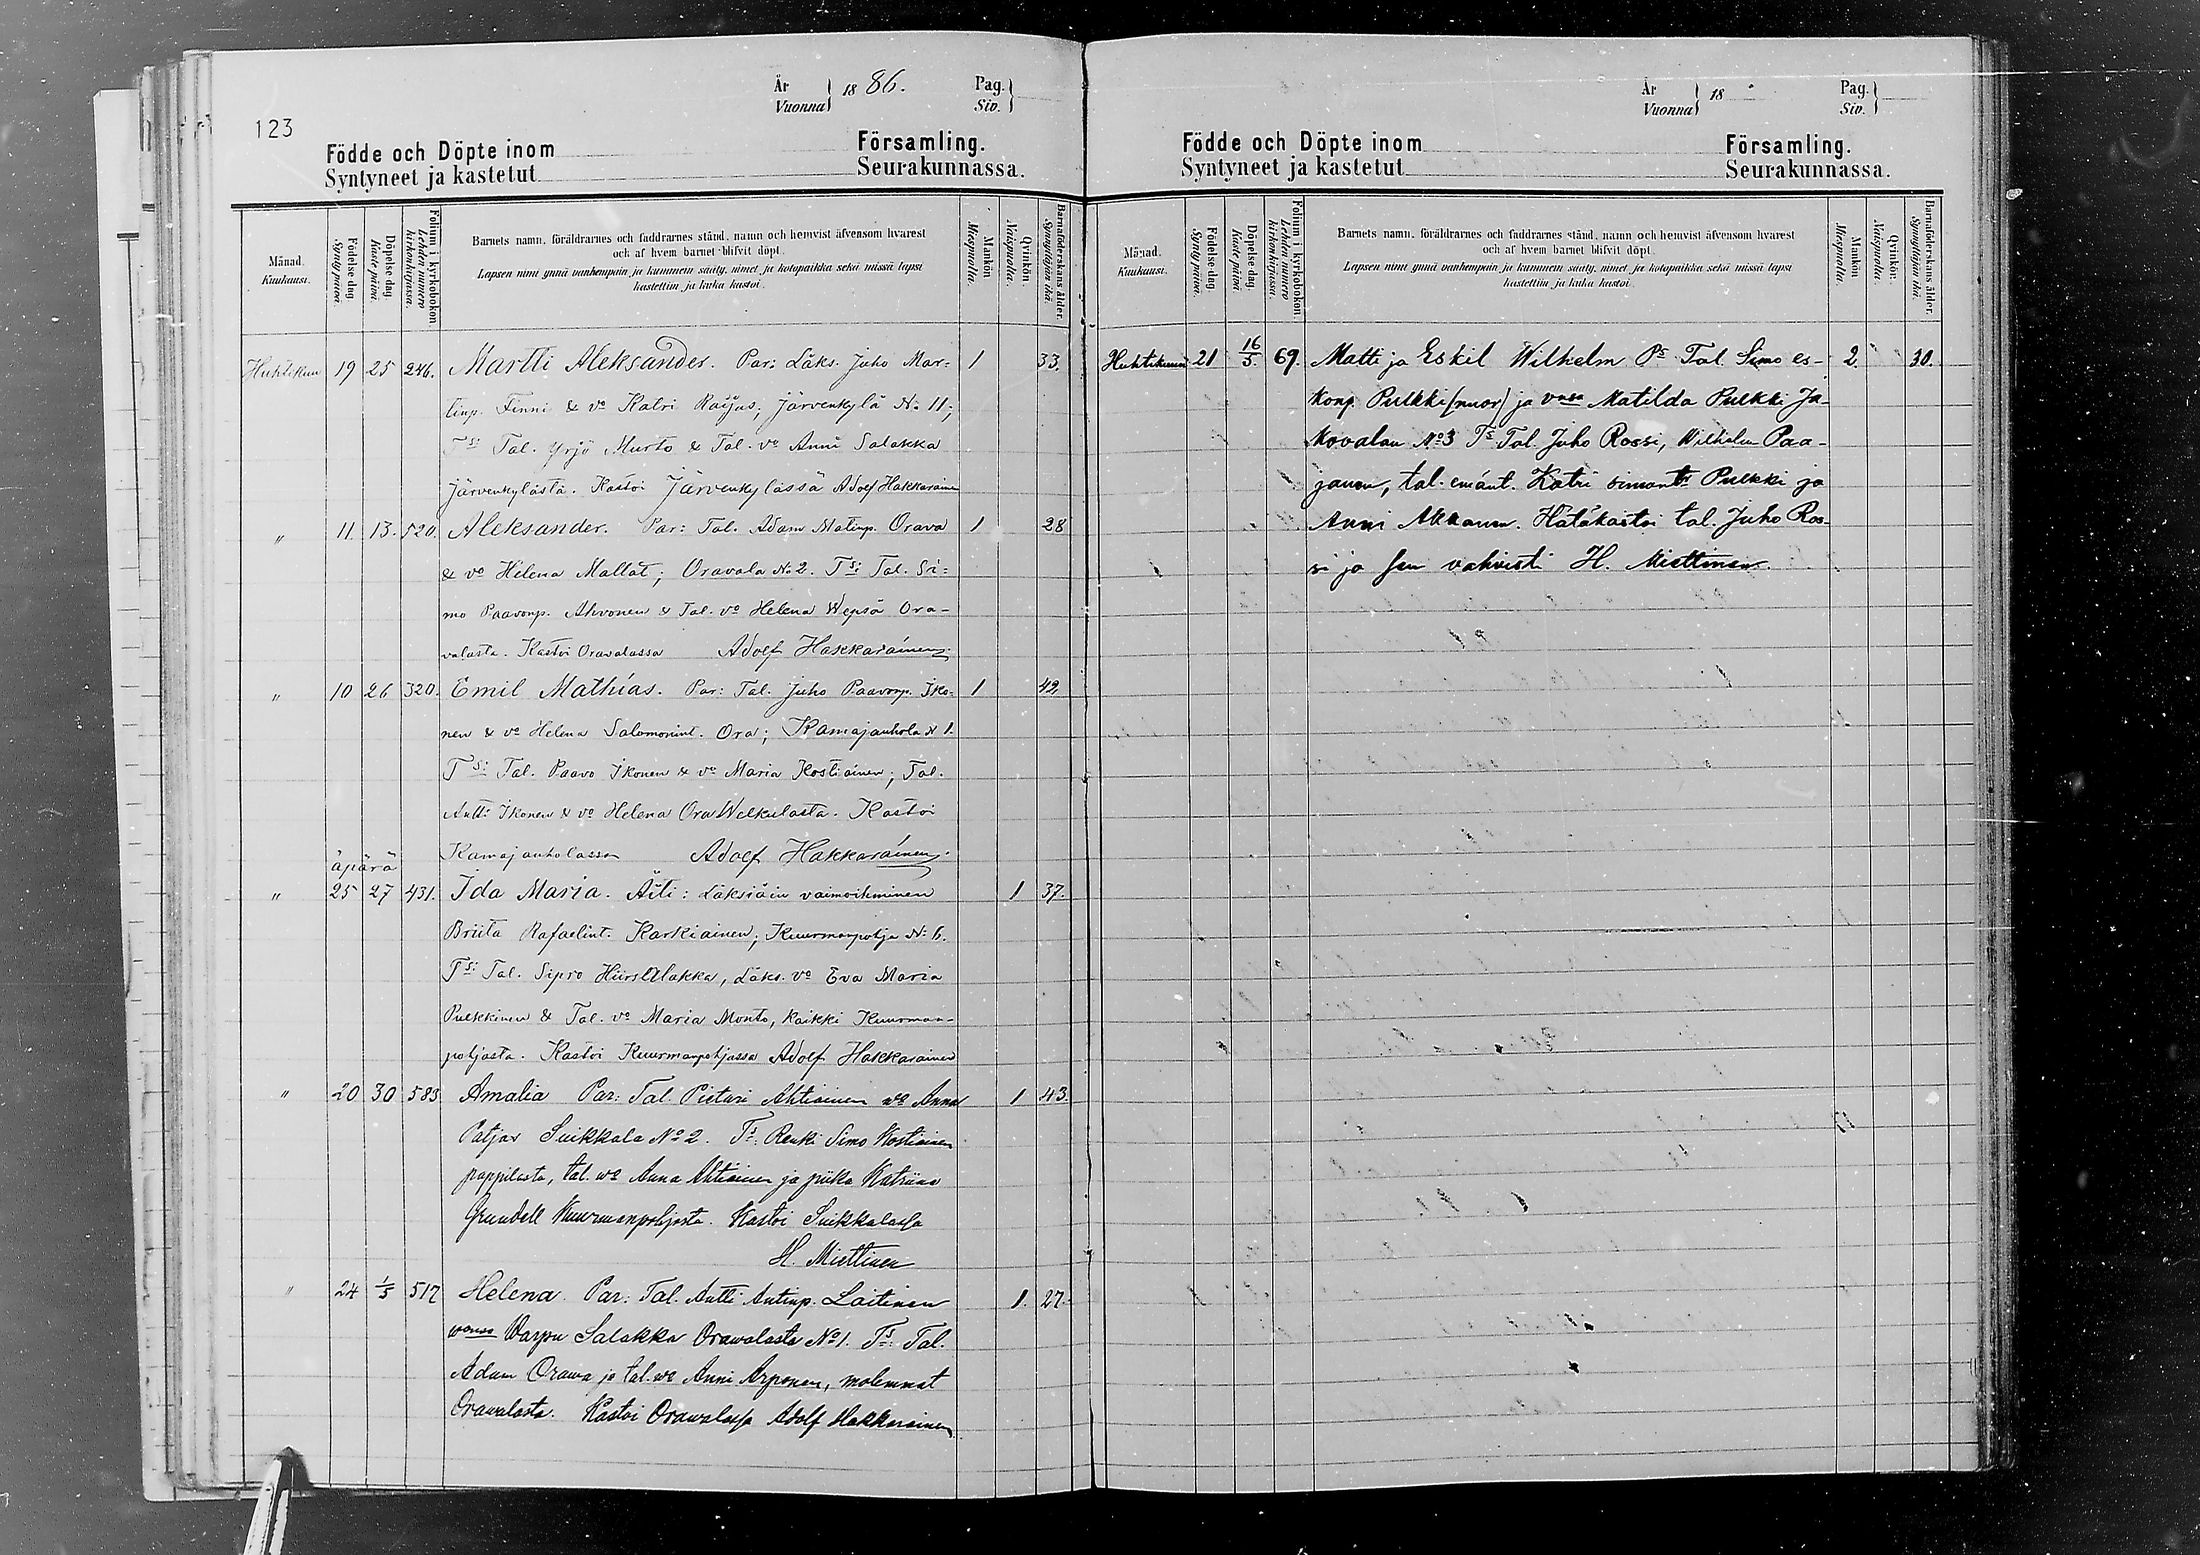 År
Vuonna
18 86.
Pag.
Siv.
123
Födde och Döpte inom Församling.
Syntyneet ja kastetut Seurakunnassa.
Månad.
Kuukausi.
Födelse-dag.
Synty päivä.
Döpelse-dag.
Kaste päivä.
Folium i kyrkoboken
Lehden numero
kirkonkirjassa.
Barnets namn, föräldrarnes och faddrarnes stånd, namn och hemvist äfvensom hvarest
och af hvem barnet blifvit döpt.
Lapsen nimi ynnä vanhempain ja kummein sääty, nimet ja kotopaikka sekä missä lapsi
kastettiin ja kuka kastoi.
Mankön
Miespuolia.
Qvinkön.
Naispuolia.
Barnaföderskans ålder.
Synnyttäjän ikä.
Huhtikuu 19 25 246. Martti Aleksander. Par: Läks. Juho Mar= 1 33.
tinp. Finni & vo Katri Raijas; Järvenkylä No 11;
Tsi Tal. Yrjö Murto & Tal. vo Anni Salakka
Järvenkylästä. Kastoi Järvenkylässä Adolf Hakkarainen
" 11. 13. 520. Aleksander. Par: Tal. Adam Matinp. Orava 1 28
& vo Helena Mallat; Oravala No 2. Tsi Tal. Si=
mo Paavonp. Ahvonen & Tal. vo Helena Wepsä Ora-
valasta. Kastoi Oravalassa Adolf Hakkarainen.
" 10 26 320. Emil Mathias. Par: Tal. Juho Paavonp. Iko- 1 42
nen & vo Helena Salomonint. Ora; Kamajauhola N 1.
Tsi Tal. Paavo Ikonen & vo Maria Kostiainen; Tal.
Antti Ikonen & vo Helena Ora Welkulasta. Kastoi
Kamajauholassa Adolf Hakkarainen.
äpärä
" 25 27 431. Ida Maria. Äiti: Läksiäin vaimoihminen 1 37.
Briita Rafaelint. Karkiainen; Kuurmanpohja No 6.
Tsi Tal. Sipro Hiirsalakka, Läks. vo Eva Maria
Pulkkinen & Tal. vo Maria Monto, kaikki Kuurman-
pohjasta. Kastoi Kuurmanpohjassa Adolf Hakkarainen
" 20 30 583 Amalia Par: Tal Pietari Ahtiainen wo Anna 1 43.
Patjas Suikkala No 2. Ts: Renki Simo Kostiainen
pappilasta, tal. wo Anna Ahtiainen ja piika Katriina
Grundell Kuurmanpohjasta. Kastoi Suikkalassa
H. Miettinen
" 24 1/5 517 Helena. Par: Tal. Antti Antinp. Laitinen 1. 27.
wonsa Warpu Salakka Orawalasta No 1. Ts: Tal.
Adam Orawa ja tal. wo Anni Arponen, molemmat
Orawalasta. Kastoi Orawalassa Adolf Hakkarainen
År
Vuonna
18
Pag.
Siv.
Födde och Döpte inom Församling.
Syntyneet ja kastetut Seurakunnassa.
Månad.
Kuukausi.
Födelse-dag.
Synty päivä.
Döpelse-dag.
Kaste päivä.
Folium i kyrkoboken
Lehden numero
kirkonkirjassa.
Barnets namn, föräldrarnes och faddrarnes stånd, namn och hemvist äfvensom hvarest
och af hvem barnet blifvit döpt.
Lapsen nimi ynnä vanhempain ja kummein sääty, nimet ja kotopaikka sekä missä lapsi
kastettiin ja kuka kastoi.
Mankön
Miespuolia.
Qvinkön.
Naispuolia.
Barnaföderskans ålder.
Synnyttäjän ikä.
Huhtikuun 21 16/5. 69. Matti ja Eskil Wilhelm Ps Tal. Simo es- 2. 30.
konp. Pulkki (nuor) ja vnsa Matilda Pulkki Ja-
kovalan No 3 Ts Tal. Juho Rossi, Wilhelm Paa-
janen, tal. emänt. Katri simontr Pulkki ja
Anni Akkanen. Hätäkastoi tal. Juho Ros-
si ja sen vahvisti H. Miettinen.